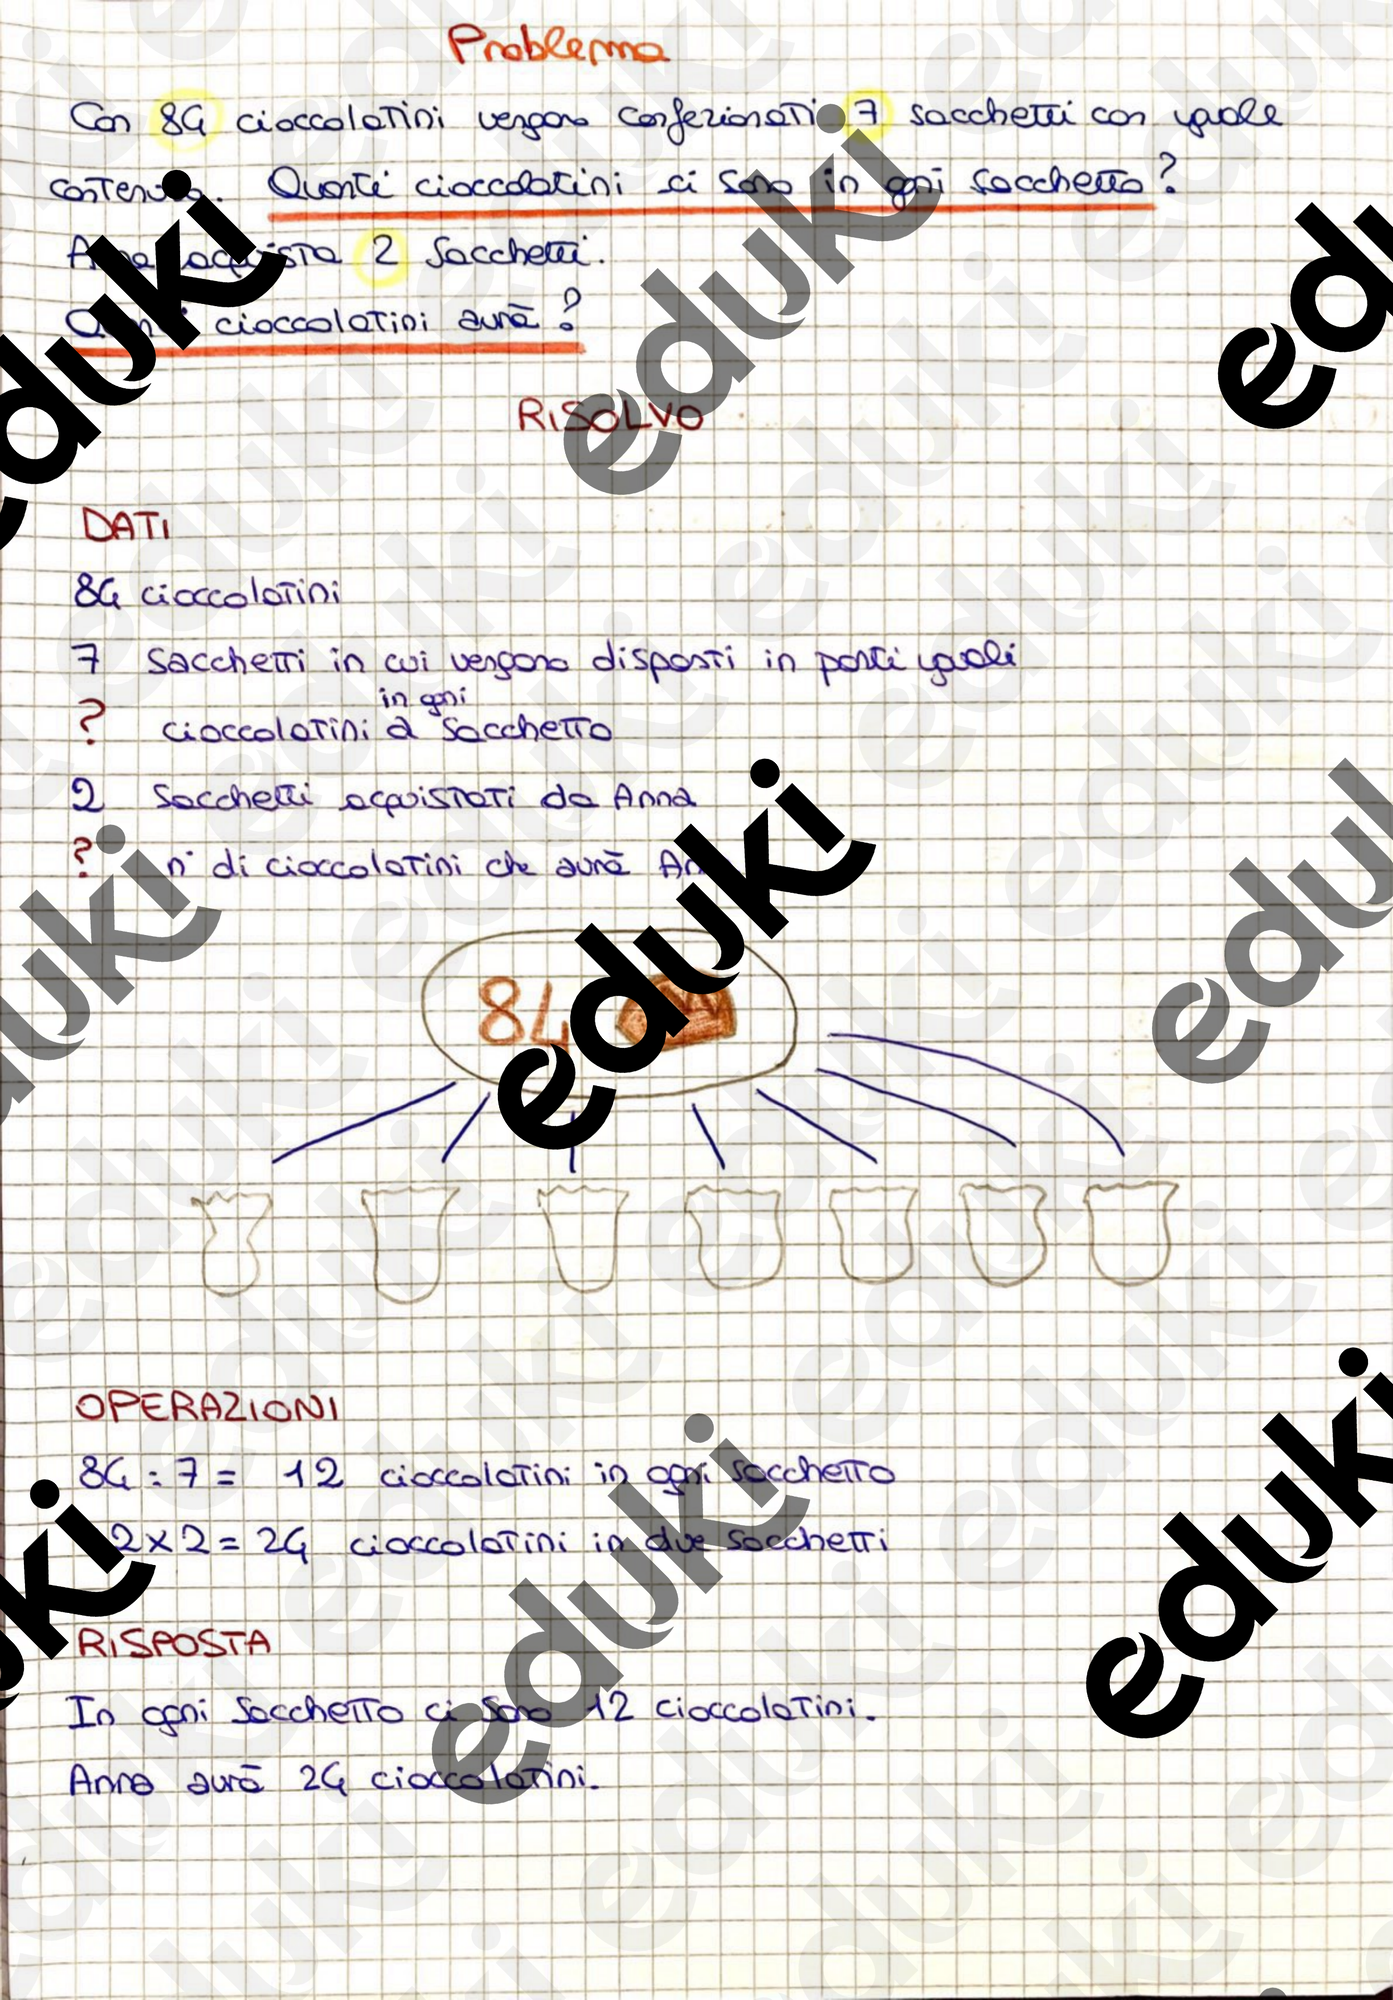 Problema
Con 84 cioccolatini vengono confezionati 7 sacchetti con uguale
contenuto. Quanti cioccolatini ci sono in ogni sacchetto?
Anna acquista 2 sacchetti.
Quanti cioccolatini avrà?
RISOLVO
DATI
84 cioccolatini
7 sacchetti in cui vengono disposti in parti uguali
in ogni
? cioccolatini a sacchetto
2 sacchetti acquistati da Anna
? n° di cioccolatini che avrà An
84
OPERAZIONI
84 : 7 = 12 cioccolatini in ogni sacchetto
2 x 2 = 24 cioccolatini in due sacchetti
RISPOSTA
In ogni sacchetto ci sono 12 cioccolatini.
Anna avrà 24 cioccolatini.
eduki
eduki
eduki
eduki
eduki
eduki
eduki
eduki
eduki